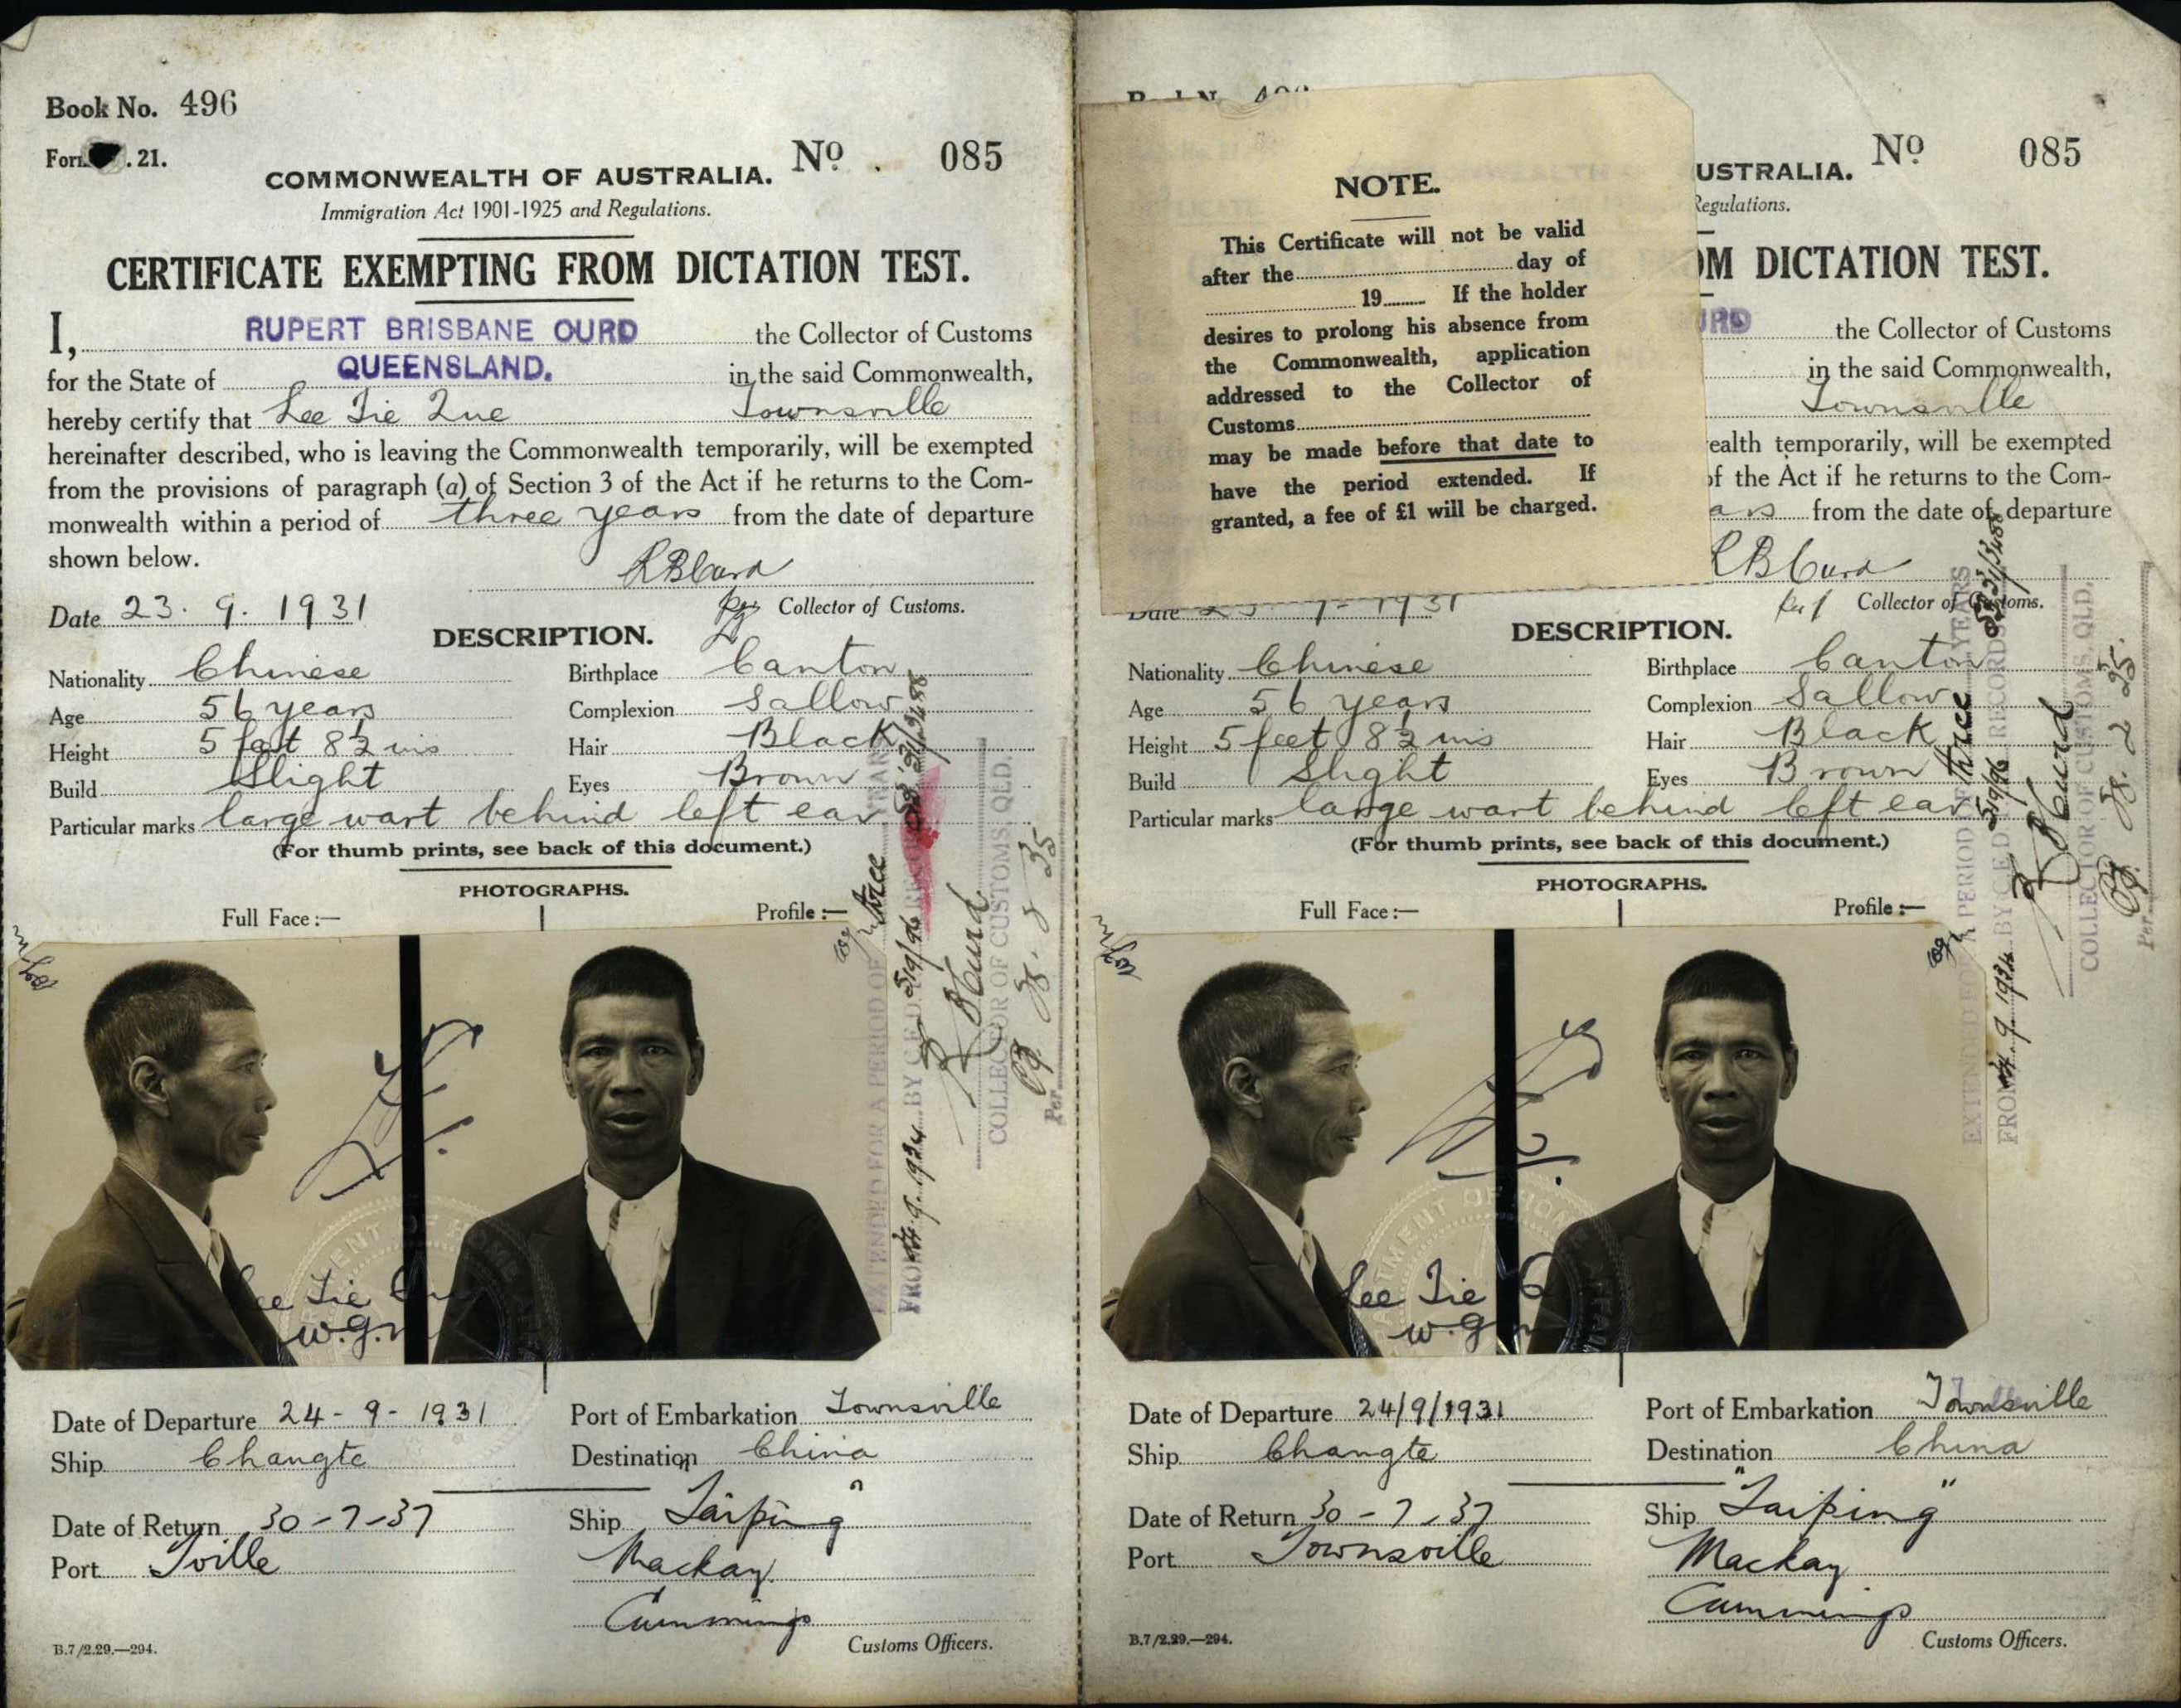 Book No. 496
21.
COMMONWEALTH OF AUSTRALIA. No. 085
Immigration Act 1901-1925 and Regulations.
CERTIFICATE EXEMPTING FROM DICTATION TEST.
I, RUPERT BRISBANE OURD the Collector of Customs
for the State of QUEENSLAND. in the said Commonwealth,
hereby certify that Lee Tie Que Townsville
hereinafter described, who is leaving the Commonwealth temporarily, will be exempted
from the provisions of paragraph (a) of Section 3 of the Act if he returns to the Com-
monwealth within a period of three years from the date of departure
shown below.
Date 23. 9. 1931 Collector of Customs.
DESCRIPTION.
Nationality Chinese Birthplace Canton
Age 56 years Complexion Sallow
Height 5 feet 8½ ins Hair Black
Build Slight Eyes Brown
Particular marks large wart behind left ear
(For thumb prints, see back of this document.)
PHOTOGRAPHS.
Full Face :— Profile :—
EXTENDED FOR A PERIOD OF three YEARS
FROM 9. 1934 BY C.E.D. RECORDS
COLLECTOR OF CUSTOMS, QLD.
Per
Lee Tie
Date of Departure 24-9-1931 Port of Embarkation Townsville
Ship Changte Destination China
Date of Return 30-7-37 Ship Taiping
Port Tville Mackay
Cummings
B.7/2.29.—294. Customs Officers.
NOTE.
This Certificate will not be valid
after the day of
19 If the holder
desires to prolong his absence from
the Commonwealth, application
addressed to the Collector of
Customs
may be made before that date to
have the period extended. If
granted, a fee of £1 will be charged.
USTRALIA. No. 085
Regulations.
OM DICTATION TEST.
the Collector of Customs
in the said Commonwealth,
Townsville
ealth temporarily, will be exempted
of the Act if he returns to the Com-
from the date of departure
Collector of Customs.
DESCRIPTION.
Nationality Chinese Birthplace Canton
Age 56 years Complexion Sallow
Height 5 feet 8½ ins Hair Black
Build Slight Eyes Brown
Particular marks large wart behind left ear
(For thumb prints, see back of this document.)
PHOTOGRAPHS.
Full Face :— Profile :—
EXTENDED FOR A PERIOD OF three YEARS
FROM 9. 1934 BY C.E.D. RECORDS
COLLECTOR OF CUSTOMS, QLD.
Per
Lee Tie
Date of Departure 24/9/1931 Port of Embarkation Townsville
Ship Changte Destination China
Date of Return 30-7-37 Ship "Taiping"
Port Townsville Mackay
Cummings
B.7/2.29.—294. Customs Officers.